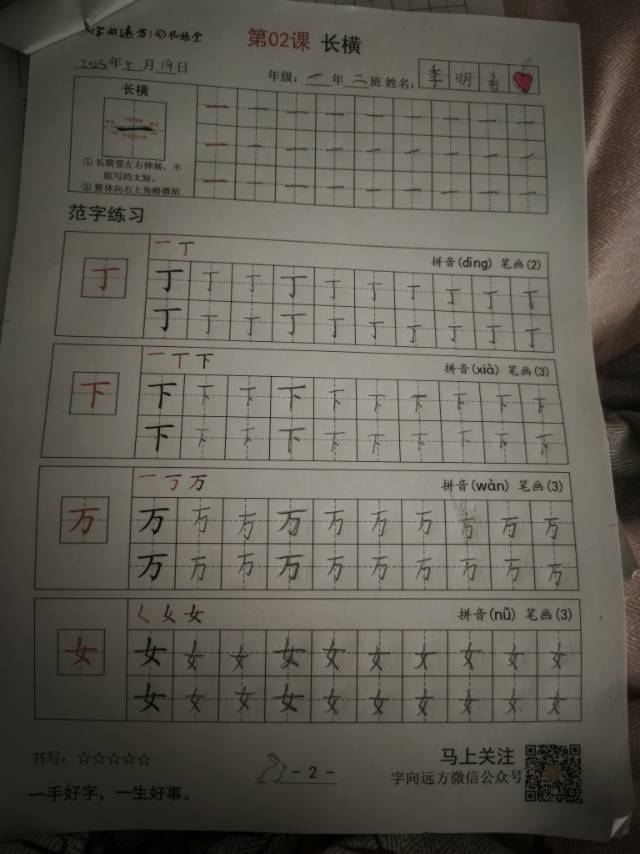 字向远方
第02课 长横
2025年4月19日
年级：一年二班 姓名：李明
长横
①长横要左右伸展，不
能写的太短。
②整体向右上角略微抬
范字练习
一 丁 拼音(dīng) 笔画(2)
丁 丁 丁 丁 丁 丁 丁 丁 丁 丁 丁
丁 丁 丁 丁 丁 丁 丁 丁 丁 丁
一 丅 下 拼音(xià) 笔画(3)
下 下 下 下 下 下 下 下 下 下 下
下 下 下 下 下 下 下 下 下 下
一 丆 万 拼音(wàn) 笔画(3)
万 万 万 万 万 万 万 万 万 万 万
万 万 万 万 万 万 万 万 万 万
く 乂 女 拼音(nǚ) 笔画(3)
女 女 女 女 女 女 女 女 女 女 女
女 女 女 女 女 女 女 女 女 女
书写：☆☆☆☆☆
- 2 -
马上关注
字向远方微信公众号
一手好字，一生好事。